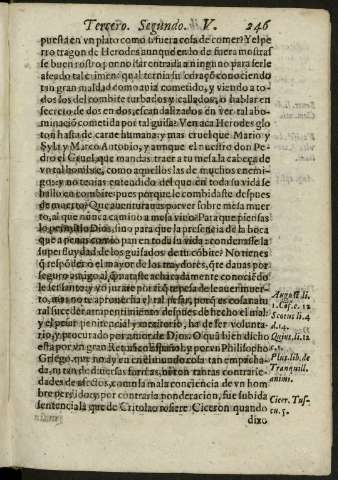 Tercero. Segundo. V. 246
puesta en vn plato como si fuera cosa de comer? Y el pe
rro tragon de Herodes aunque en lo de fuera mostras
se buen rostro por no dar entrada a ninguno para ser le
afeado tal crimen: qual ternia su coraçõ conociendo
tan gran maldad como auia cometido, y viendo a to-
dos los del combite turbados y callados, o hablar en
secreto de dos en dos, escandalizados en ver tal abo-
minaciõ cometida por tal guisa? Ven aca Herodes glo
ton hasta de carne humana: y mas cruel que Mario y
Syla y Marco Antonio, y aunque el nuestro don Pe-
dro el Cruel, que mandas traer a tu mesa la cabeça de
vn tal hombre, como aquellos las de muchos enemi-
gos: y no tenias entendido del que en toda su vida se
hallo en combite, pues porque le combidaste despues
de muerto? Que auenturauas por ver sobre mesa muer
to, al que nunca camino a mesa viuo? Para que piensas
lo permitio Dios, sino para que la presencia de la boca
que apenas comio pan en toda su vida: condenasse la
superfluydad de los guisados de tu cõbite? No tienes
q̃ respõder o el mayor de los traydores, q̃ te dauas por
seguro amigo al q̃ matarle achacadamente conociẽdo
le ser santo: y yo jurare por ti q̃ te pesa de le auer muer-
to, mas no te aprouecha el tal pesar, porq̃ es cosa natu
ral suceder arrepentimiento despues de hecho el mal:
y el pesar penitencial y meritorio, ha de ser volunta-
rio, y procurado por amor de Dios. O quã bien dicho
esta por vn gran Retorico Español, y por vn Philosopho
Griego, que no ay en el mundo cosa tan empacha-
da, ni tan de diuersas formas, ni con tantas contrarie-
dades de afectos, como la mala conciencia de vn hom
bre perdido: y por contraria ponderacion, fue subida
sentencia la que de Critolao refiere Ciceron quando
dixo
August. li.
1. Cōf. c. 12
Scotus li. 4
d. 14.
Quint. li. 12
c. 1.
Plut. lib. de
Tranquill.
animi.
Cicer. Tus-
cu. 5.